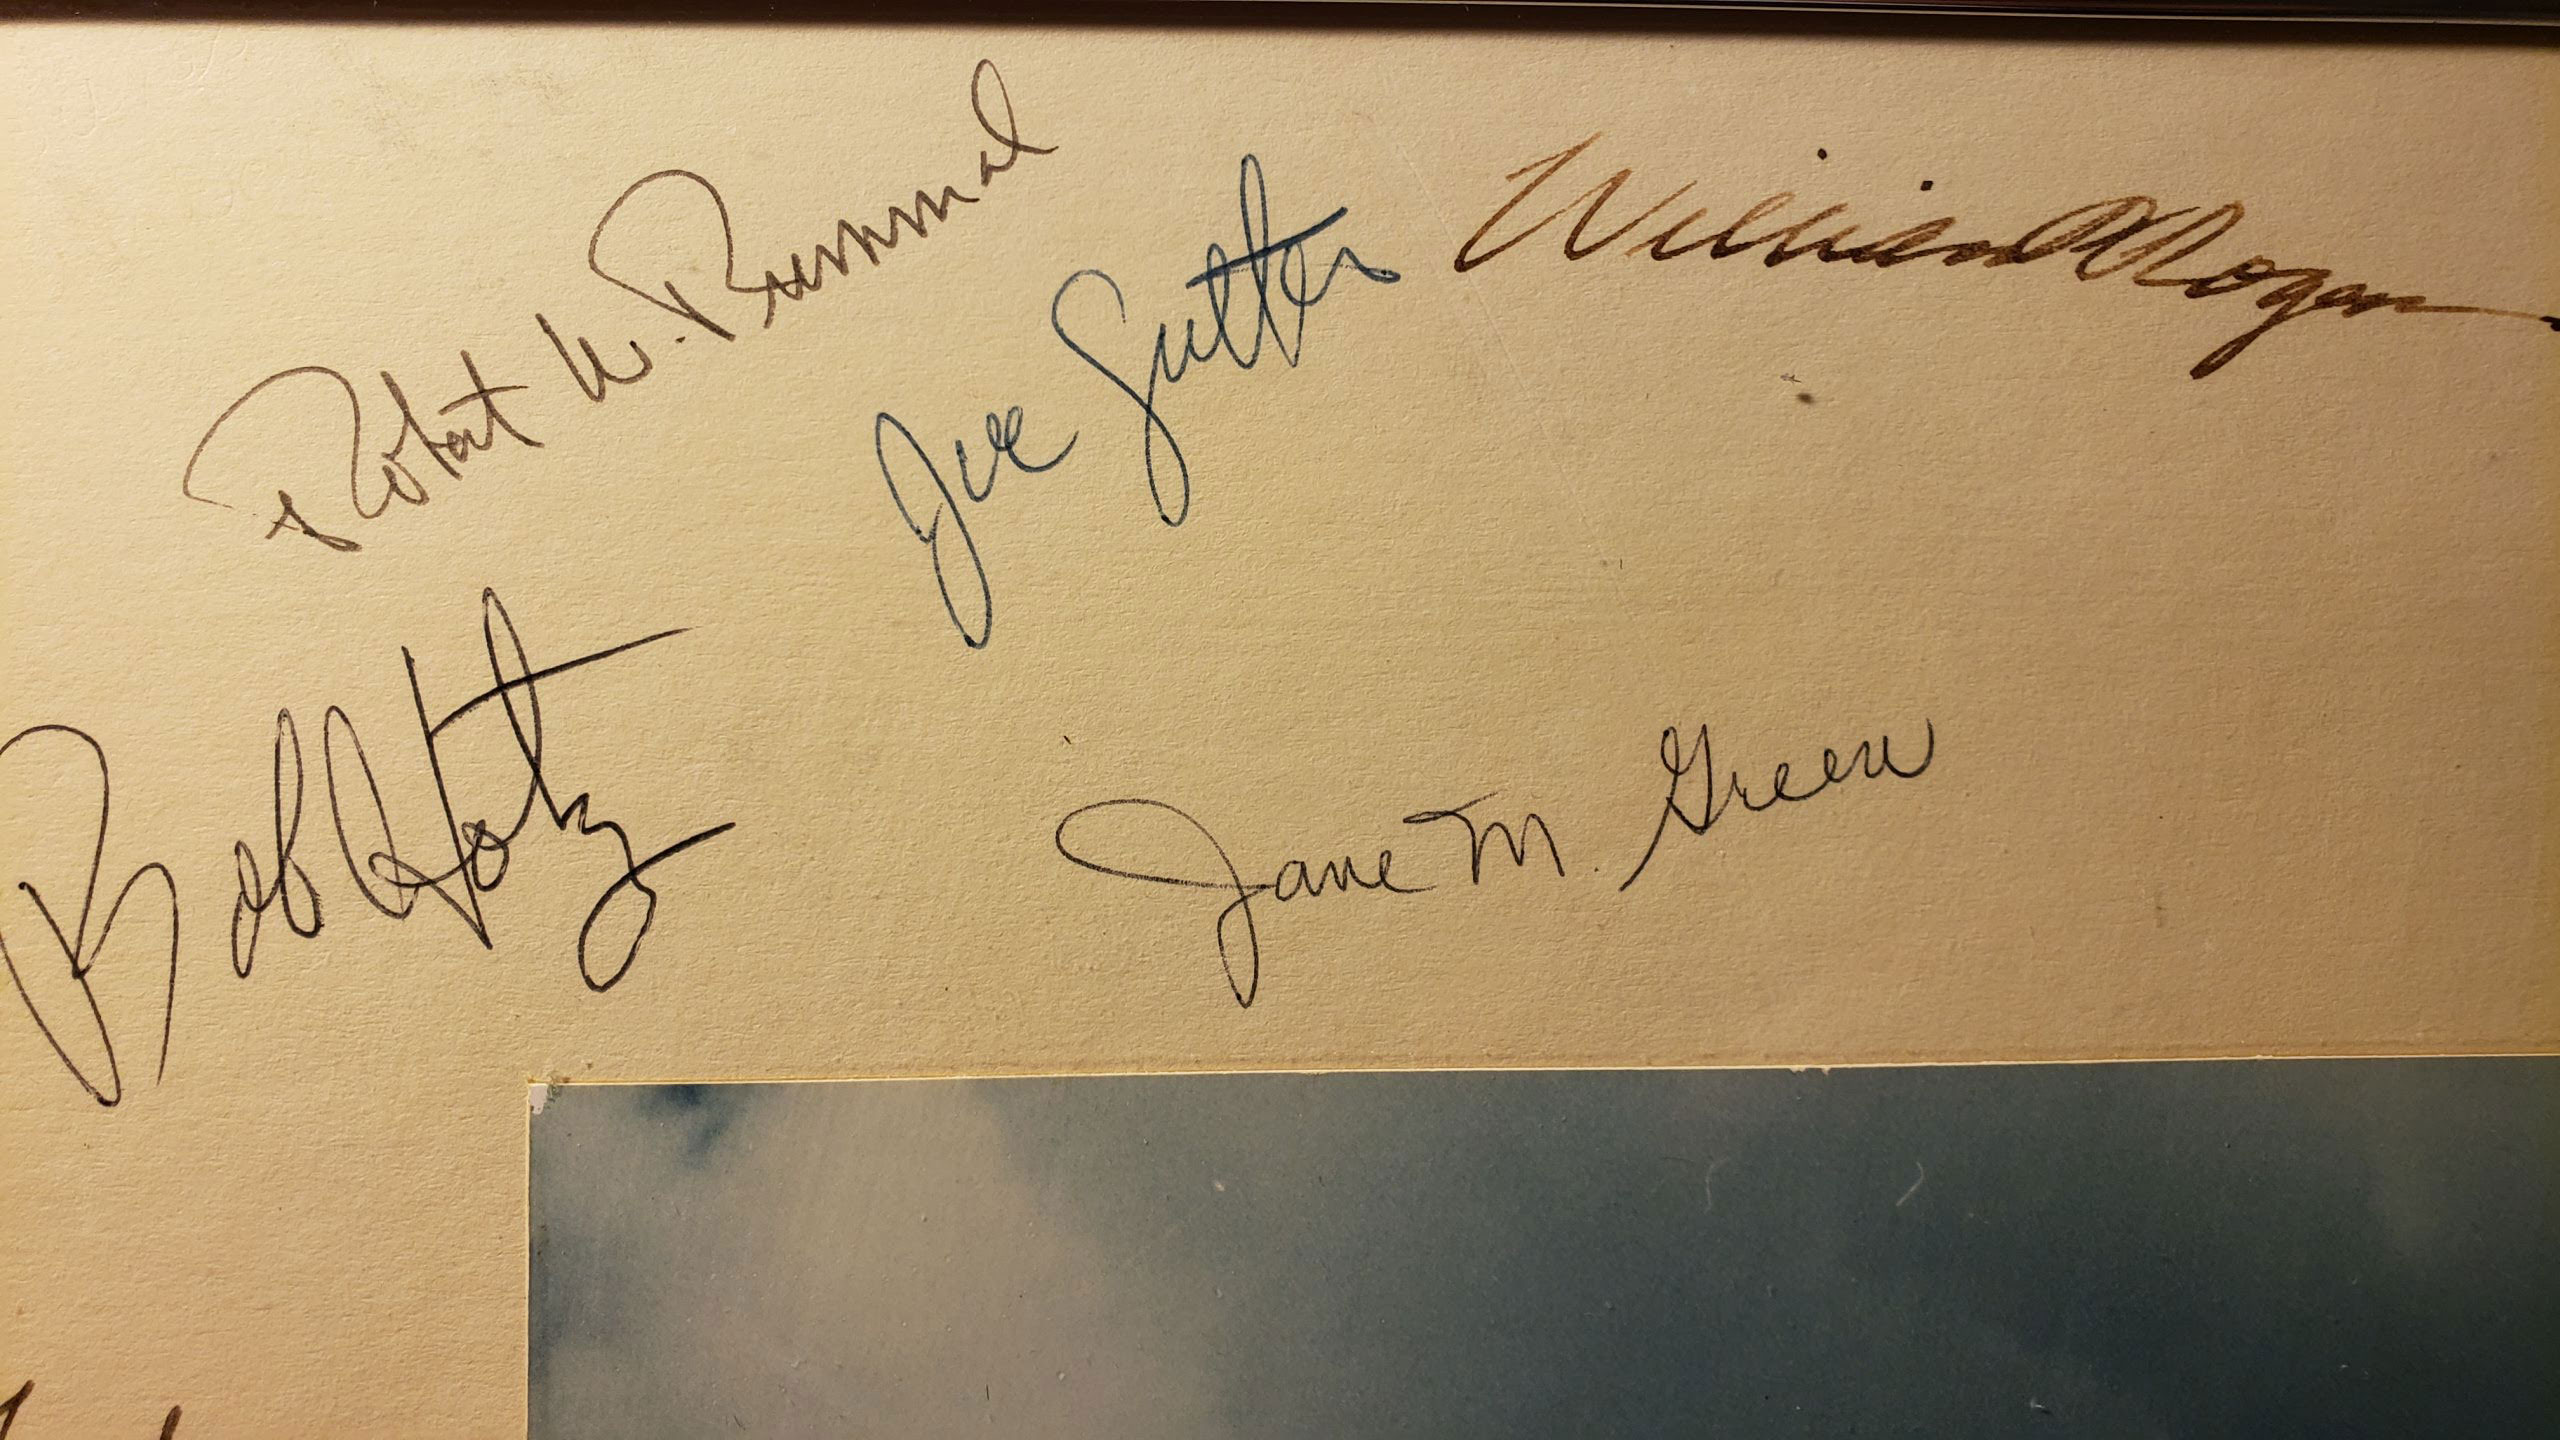 Robert W. Rummel
Joe Sutter
William Rogers
Bob Hotz
Jane M. Green